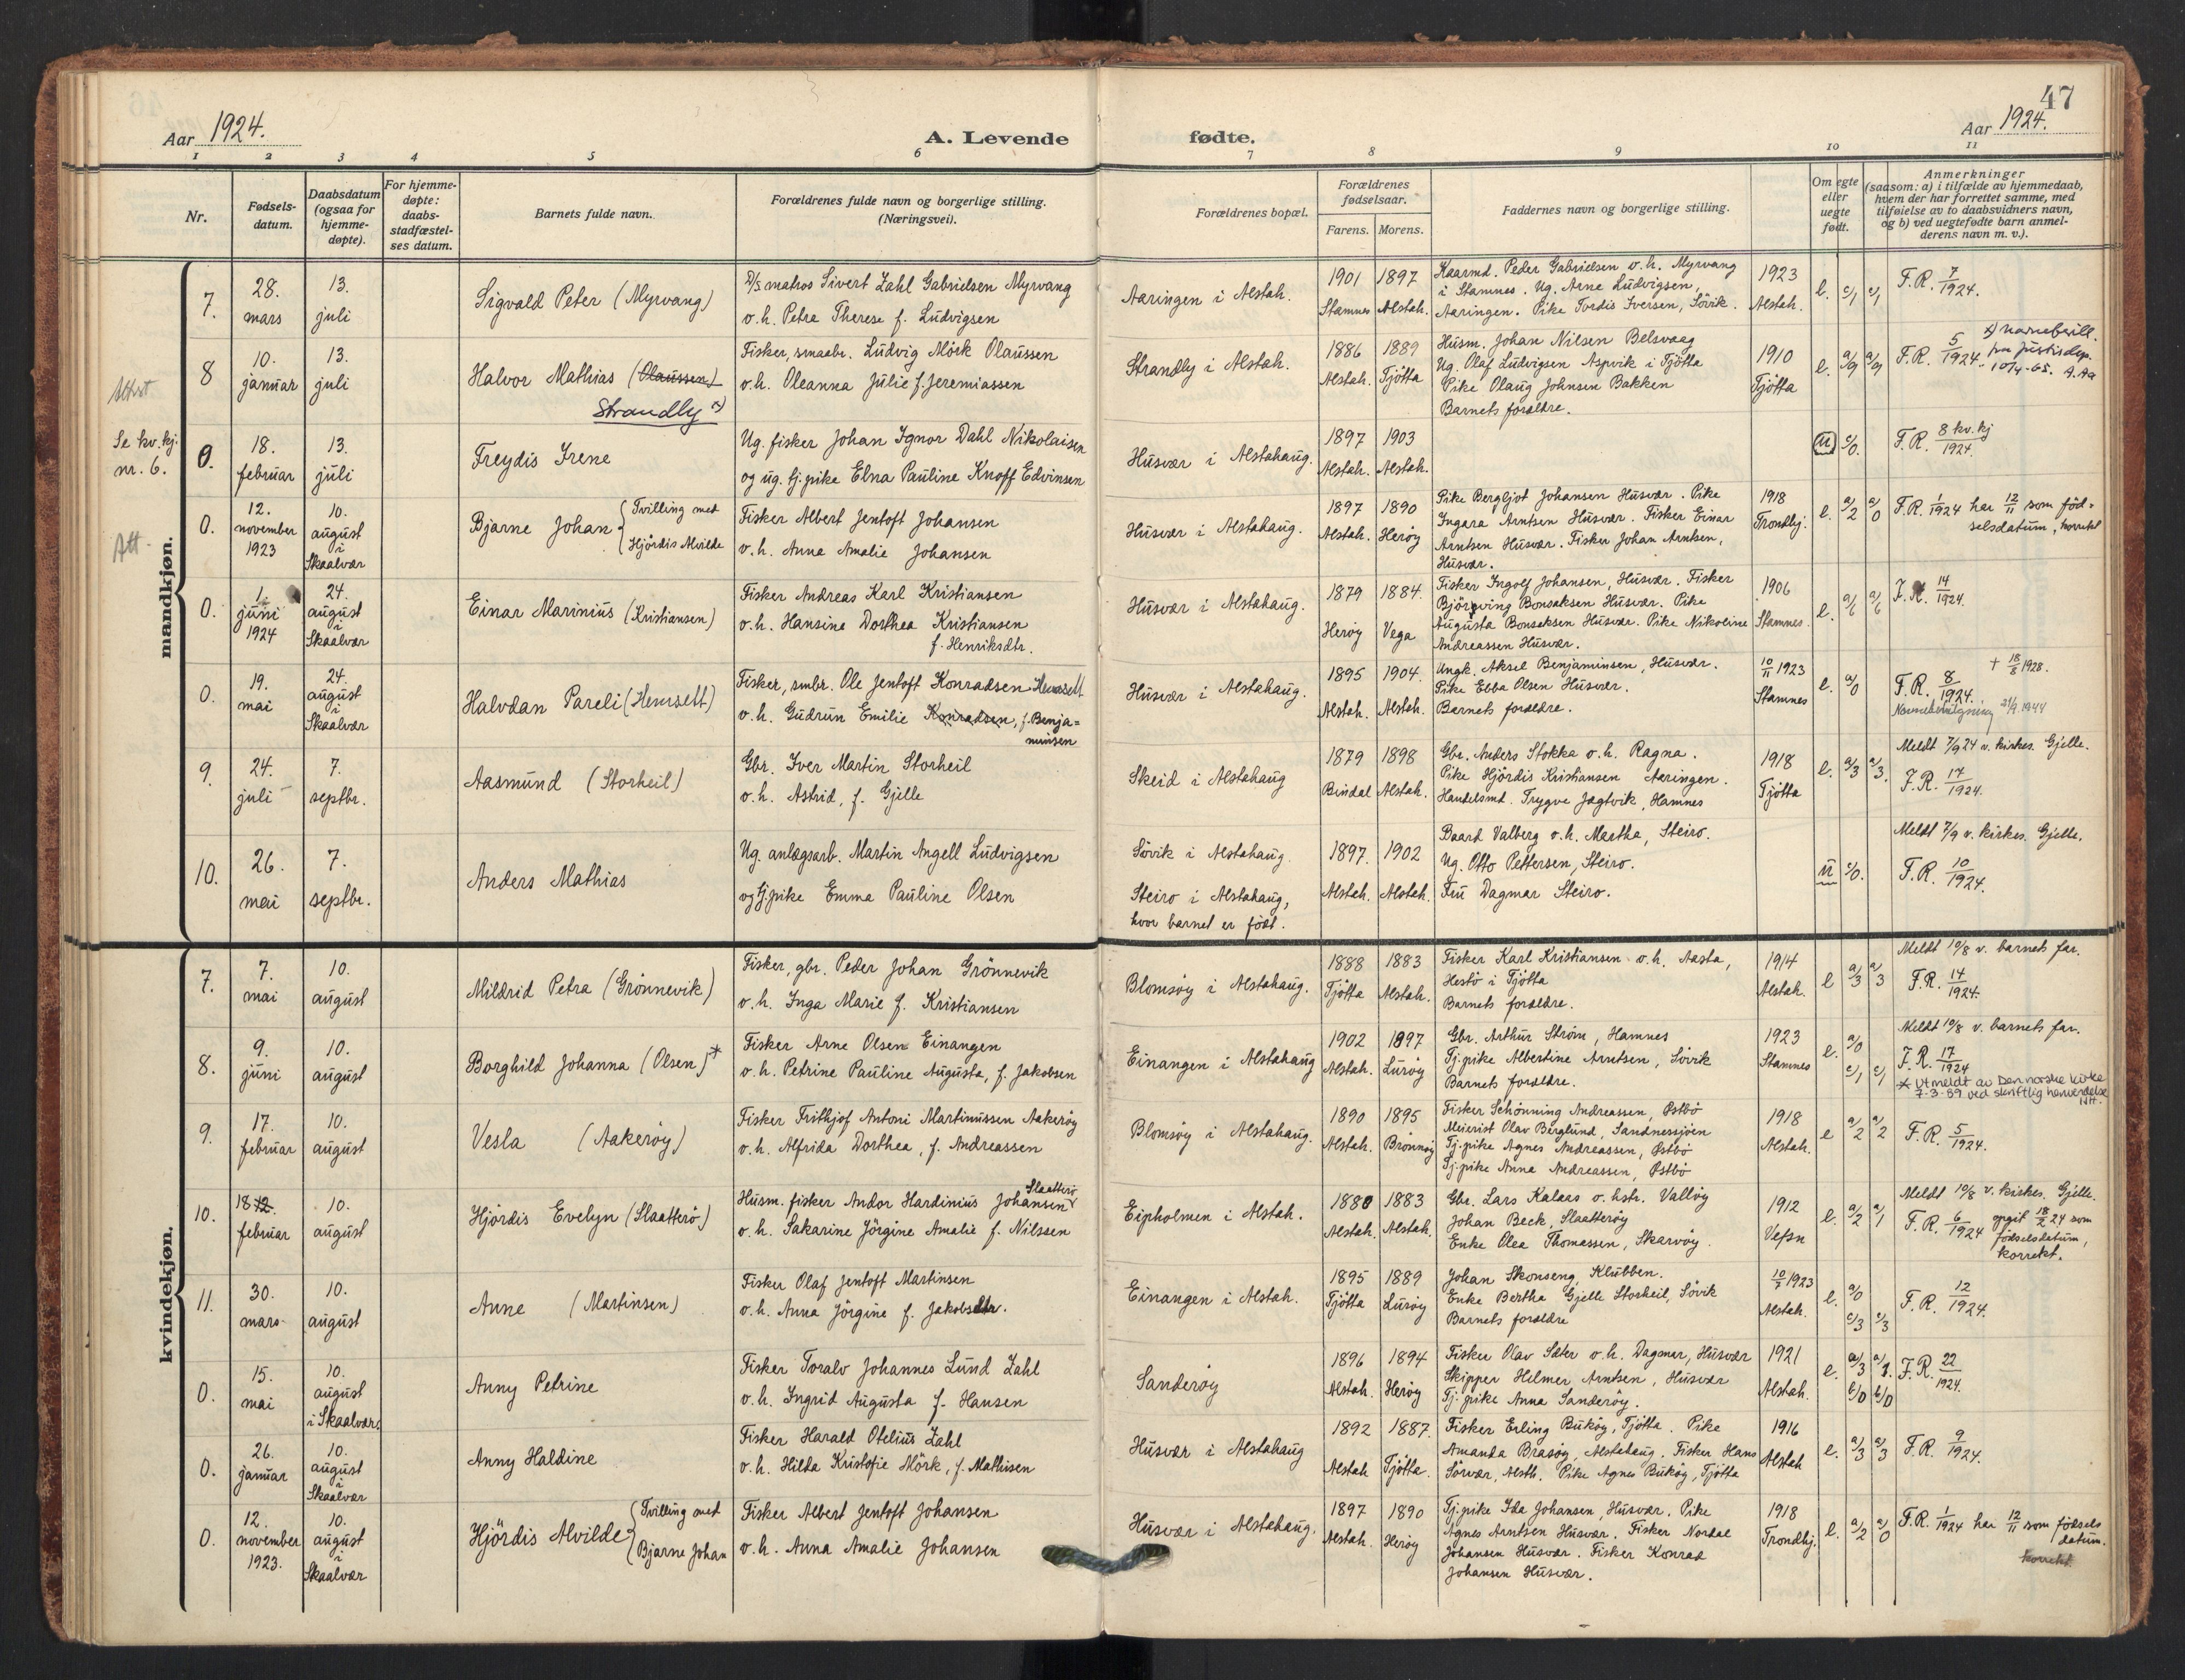 47
Aar 1924.
A. Levende fødte.
Aar 1924.
1 2 3 4 5 6 7 8 9 10 11
Nr.
Fødsels-
datum.
Daabsdatum
(ogsaa for
hjemme-
døpte).
For hjemme-
døpte:
daabs-
stadfæstel-
ses datum.
Barnets fulde navn.
Forældrenes fulde navn og borgerlige stilling.
(Næringsvei).
Forældrenes bopæl.
Forældrenes
fødselsaar.
Farens. Morens.
Faddernes navn og borgerlige stilling.
Om egte
eller
uegte
født.
Anmerkninger
(saasom: a) i tilfælde av hjemmedaab,
hvem der har forrettet samme, med
tilføielse av to daabsvidners navn,
og b) ved uegtefødte barn anmel-
derens navn m. v.).
mandkjøn.
7.
28.
mars
13.
juli
Sigvald Peter (Myrvang)
D/s matros Sivert Zahl Gabrielsen Myrvang
o.h. Petra Therese f. Ludvigsen
Aaringen i Alstah.
1901 1897
Stamnes Alstah.
Kaarmd. Peder Gabrielsen o.h. Myrvang
i Stamnes. Ug. Arne Ludvigsen,
Aaringen. Pike Tordis Iversen, Sövik.
1923
Alstah.
e. c/1 c/1
F.R. 7/1924.
Attest
8
10.
januar
13.
juli
Halvor Mathias (Olaussen)
Strandly x)
Fisker, smaabr. Ludvig Mörk Olaussen
o.h. Oleanna Julie f. Jeremiassen
Strandly i Alstah.
1886 1889
Alstah. Tjötta
Husm. Johan Nilsen Belsvaag
Ug. Olaf Ludvigsen Aspvik i Tjötta
Pike Olaug Johnsen Bakken
Barnets forældre.
1910
Tjötta
e. a/9 a/9
F.R. 5/1924.
x) navnebevill.
fra justisdep.
10/4-65. A.Aa
Se kv.kj.
nr. 6.
0.
18.
februar
13.
juli
Freydis Irene
Ug. fisker Johan Ignor Dahl Nikolaisen
og ug. tj.pike Elna Pauline Knoff Edvinsen
Husvær i Alstahaug.
1897 1903
Alstah. Alstah.
u c/0.
F.R. 8 kv. kj/1924.
Att.
0.
12.
november
1923
10.
august
i
Skaalvær
Bjarne Johan { Tvilling med
Hjördis Alvilde
Fisker Albert Jentoft Johansen
o.h. Anna Amalie Johansen
Husvær i Alstahaug.
1897 1890
Alstah. Heröy
Pike Bergljot Johansen Husvær. Pike
Ingara Arntsen Husvær. Fisker Einar
Arntsen Husvær. Fisker Johan Arntsen,
Husvær.
1918
Trondhj.
e. a/2 a/0
F.R. 1/1924 har 12/11 som fød-
selsdatum, korrekt
0.
1.
juni
1924
24.
august
i
Skaalvær
Einar Marinius (Kristiansen)
Fisker Andreas Karl Kristiansen
o.h. Hansine Dorthea Kristiansen
f. Henriksdtr.
Husvær i Alstahaug.
1879 1884.
Heröy Vega
Fisker Ingolf Johansen, Husvær. Fisker
Björgving Bonsaksen Husvær. Pike
Augusta Bonsaksen Husvær. Pike Nikoline
Andreassen Husvær.
1906
Stamnes.
e. a/6 a/6
F.R. 14/1924.
0.
19.
mai
24.
august
i
Skaalvær
Halvdan Pareli (Hemsett)
Fisker, smbr. Ole Jentoft Konradsen Hemsett
o.h. Gudrun Emilie Konradsen, f. Benja-
minsen
Husvær i Alstahaug.
1895 1904.
Alstah. Alstah.
Ungk. Aksel Benjaminsen, Husvær.
Pike Ebba Olsen Husvær.
Barnets forældre.
10/11 1923
Stamnes
e. a/0
+ 18/8 1928.
F.R. 8/1924.
9.
24.
juli
7.
septbr.
Aasmund (Storheil)
Gbr. Iver Martin Storheil
o.h. Astrid, f. Gjelle
Skeid i Alstahaug
1879 1898
Bindal Alstah.
Gbr. Anders Stokka o.h. Ragna.
Pike Hjördis Kristiansen Aaringen.
Handelsmd. Trygve Jagtvik, Hamnes
1918
Tjötta
e. a/3 a/3.
Meldt 7/9 24 v. kirkes. Gjelle.
F.R. 17/1924.
10.
26.
mai
7.
septbr.
Anders Mathias
Ug. anlægsarb. Martin Angell Ludvigsen
og tj.pike Emma Pauline Olsen
Sövik i Alstahaug.
Steiro i Alstahaug,
hvor barnet er født.
1897. 1902
Alstah. Alstah.
Baard Valberg o.h. Martha, Steiro.
Ug. Otto Pettersen, Steiro.
Fru Dagmar Steiro.
u c/0.
Meldt 7/9 v. kirkes. Gjelle.
F.R. 10/1924.
kvindekjøn.
7.
7.
mai
10.
august
Mildrid Petra (Grönnevik)
Fisker, gbr. Peder Johan Grönnevik
o.h. Inga Marie f. Kristiansen
Blomsöy i Alstahaug.
1888 1883
Tjötta Alstah.
Fisker Karl Kristiansen o.h. Aasta,
Hestö i Tjötta
Barnets forældre.
1914
Alstah.
e a/3 a/3
Meldt 10/8 v. barnets far.
F.R. 14/1924.
8.
9.
juni
10.
august
Borghild Johanna (Olsen) *
Fisker Arne Olsen Einangen
o.h. Petrine Pauline Augusta, f. Jakobsen
Einangen i Alstahaug
1902 1897
Alstah. Luröy
Gbr. Arthur Ström, Hamnes
Tj.pike Albertine Arntsen, Sövik
Barnets forældre.
1923
Stamnes
e. a/0
c/1 c/1
Meldt 10/8 v. barnets far.
F.R. 17/1924
* Utmeldt av Den norske kirke
7-3-89 ved skriftlig henvendelse
9.
17.
februar
10.
august
Vesla (Aakeröy)
Fisker Frithjof Antoni Martinussen Aakeröy
o.h. Alfrida Dorthea, f. Andreassen
Blomsöy i Alstahaug.
1890 1895
Alstah. Brönnöy
Fisker Schönning Andreassen, Østbö
Meierist Olav Berglund, Sandnessjöen
Tj.pike Agnes Andreassen, Østbö
Tj.pike Anna Andreassen, Østbö
1918
Alstah.
e a/2 a/2
F.R. 5/1924.
10.
18 12.
februar
10.
august
Hjördis Evelyn (Slaatterö)
Husm. fisker Andor Hardinius Johansen Slaatterö
o.h. Sakarine Jörgine Amalie f. Nilssen
Eipholmen i Alstah.
1880 1883
Alstah. Alstah.
Gbr. Lars Kalaas o. hstr. Vallöy
Johan Beck, Slaatteröy
Enke Olea Thomassen, Skarvöy.
1912
Vefsn
e. a/2 a/1
Meldt 10/8 v. kirkes. Gjelle.
F.R. 6/1924 opgit 18/2 24 som
fødselsdatum,
korrekt.
11.
30.
mars
10.
august
Anne (Martinsen)
Fisker Olaf Jentoft Martinsen
o.h. Anna Jörgine f. Jakobsdtr.
Einangen i Alstah.
1895 1889
Tjötta Luröy
Johan Skonseng, Klubben.
Enke Bertha Gjelle Storheil, Sövik
Barnets forældre
10/2 1923
Alstah.
e. a/0
c/3 c/3
F.R. 12/1924.
0.
15.
mai
10.
august
i Skaalvær.
Anny Petrine
Fisker Toralv Johannes Lund Zahl
o.h. Ingrid Augusta f. Hansen
Sanderöy
1896 1894
Alstah. Heröy
Fisker Olav Sæter o.h. Dagmar, Husvær
Skipper Helmer Arntsen, Husvær
Tj.pike Anna Sanderöy.
1921
Alstah.
e. a/3 a/1.
b/0 b/0
F.R. 22/1924.
0.
26.
januar
10.
august
i
Skaalvær
Anny Haldine
Fisker Harald Otelius Zahl
o.h. Hilda Kristofie Mörk, f. Mathisen
Husvær i Alstahaug
1892 1887.
Alstah Tjötta.
Fisker Erling Buköy, Tjötta. Pike
Amanda Brasöy, Alstahaug. Fisker Hans
Sörvær, Alsth. Pike Agnes Buköy, Tjötta
1916
Alstah
e. a/3 a/3
F.R. 9/1924.
0.
12.
november
1923.
10.
august
i
Skaalvær
Hjördis Alvilde { Tvilling med
Bjarne Johan
Fisker Albert Jentoft Johansen
o.h. Anna Amalie Johansen
Husvær i Alstahaug.
1897 1890
Alstah. Heröy
Tj.pike Ida Johansen, Husvær. Pike
Agnes Arntsen Husvær. Fisker Nordal
Johansen Husvær. Fisker Konrad
Johansen Husvær.
1918
Trondhj.
e. a/2 a/0
F.R. 1/1924 har 12/11 som fødsels
datum.
korrekt